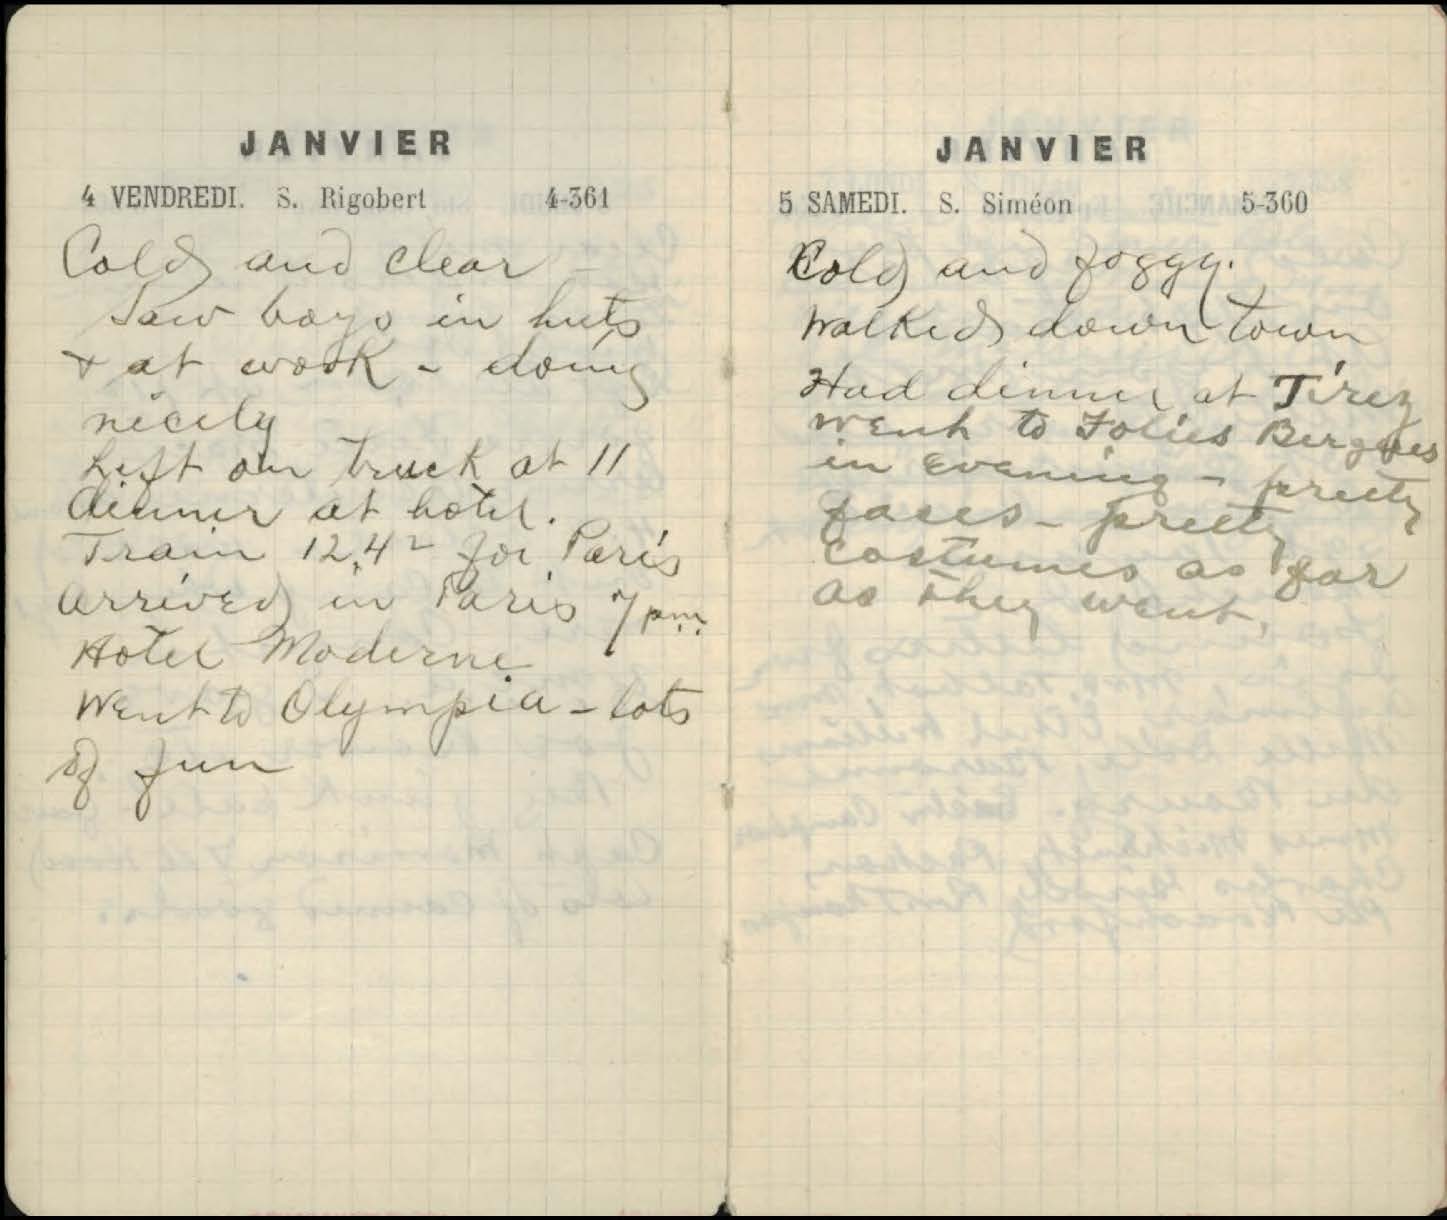 JANVIER
4 VENDREDI. S. Rigobert 4-361
Cold and clear -
Saw boys in huts
+ at work - doing
nicely
Left on truck at 11
dinner at hotel.
Train 12.42 for Paris
arrived in Paris 7 pm.
Hotel Moderne
Went to Olympia - lots
of fun
JANVIER
5 SAMEDI. S. Siméon 5-360
Cold and foggy.
Walked down town
Had dinner at Tirez
went to Folies Bergeres
in Evening - pretty
faces - pretty
costumes as far
as they went.